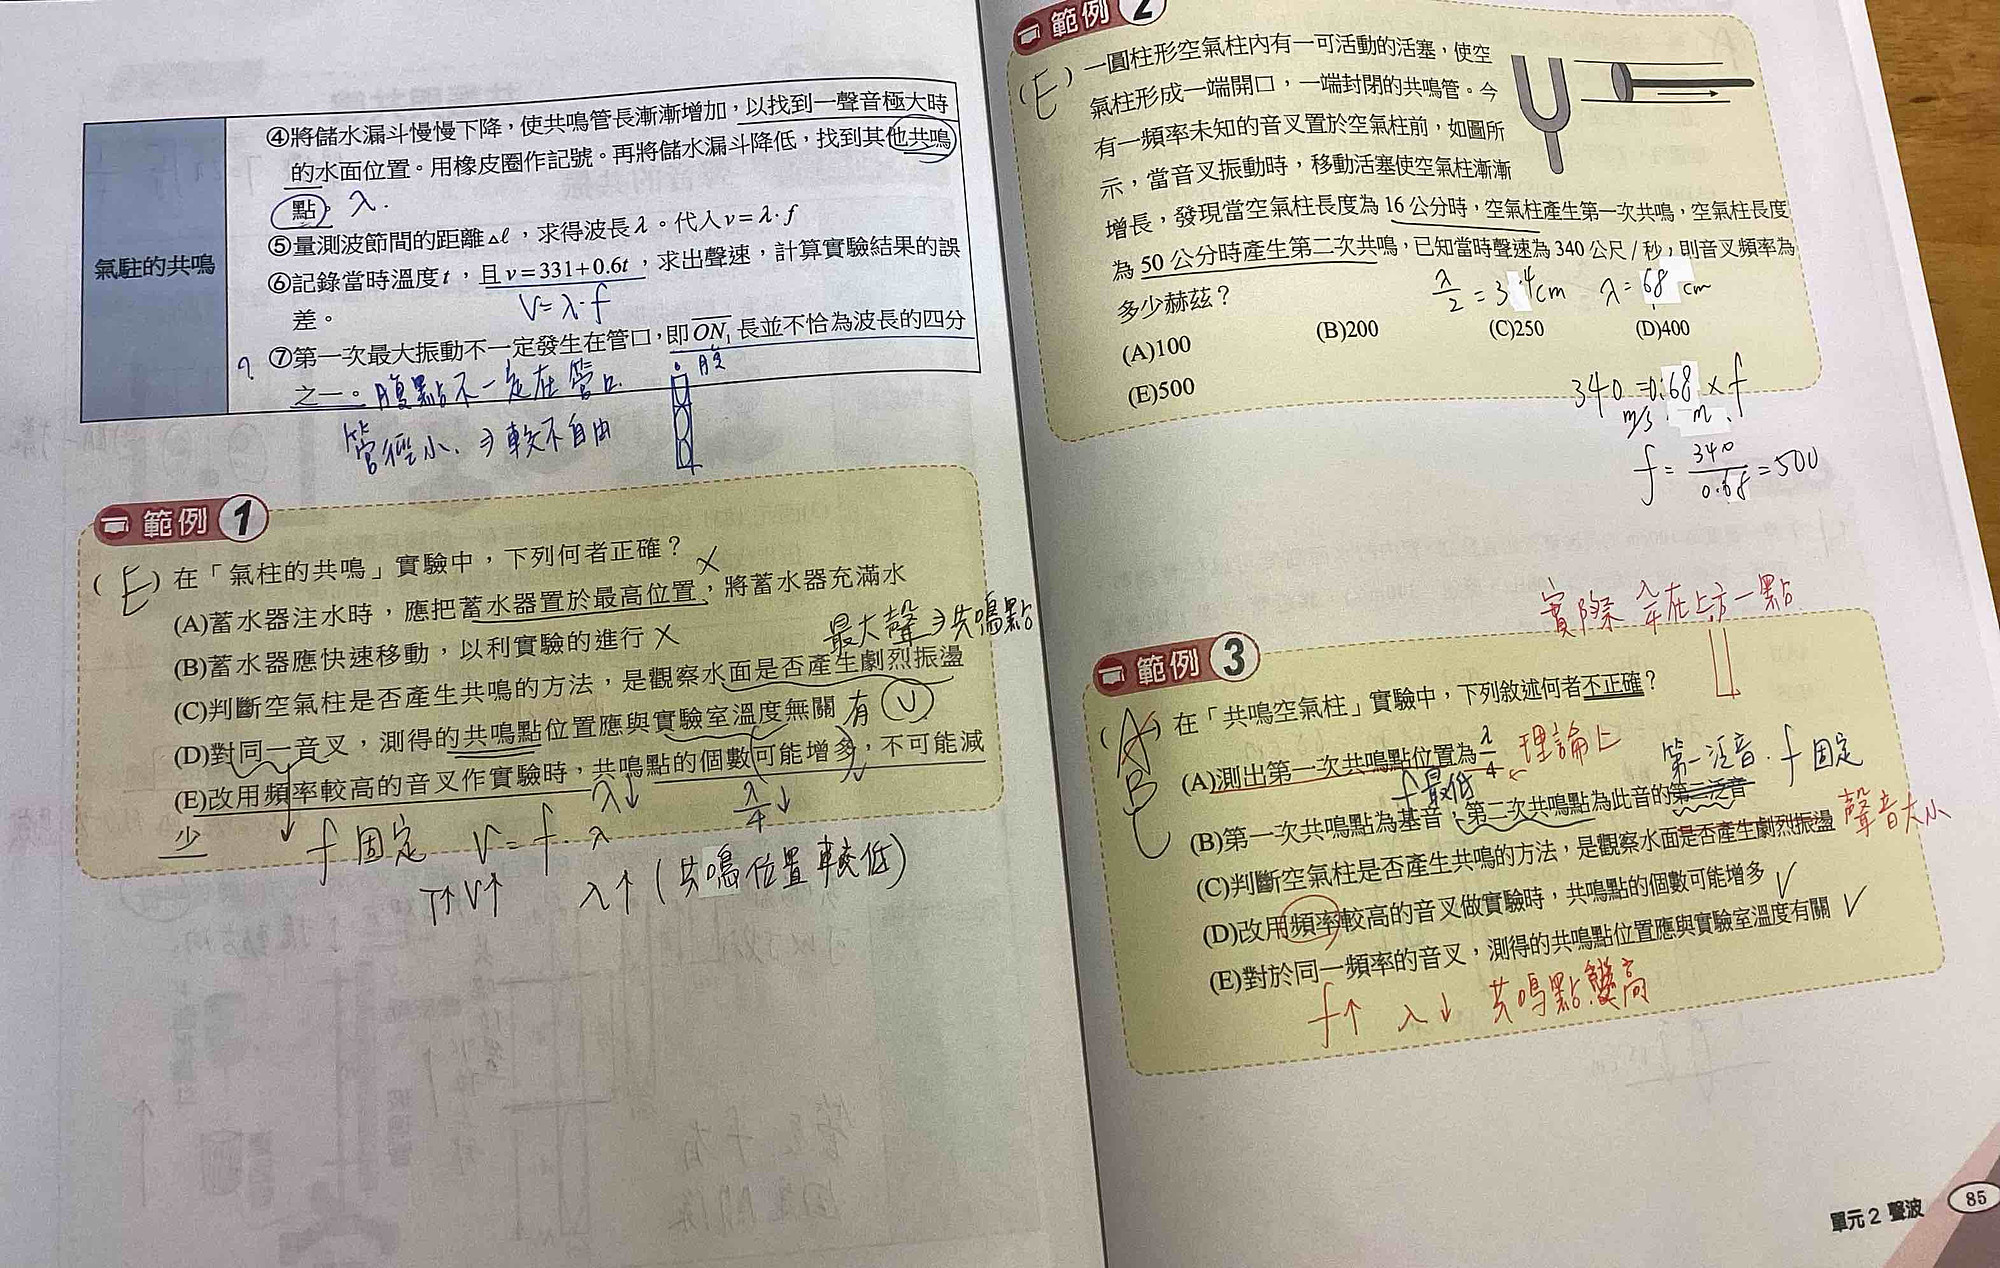 氣駐的共鳴
④將儲水漏斗慢慢下降，使共鳴管長漸漸增加，以找到一聲音極大時
的水面位置。用橡皮圈作記號。再將儲水漏斗降低，找到其他共鳴
點。 λ.
⑤量測波節間的距離Δℓ，求得波長λ。代入v=λ·f
⑥記錄當時溫度t，且v=331+0.6t，求出聲速，計算實驗結果的誤
差。 V=λ·f
⑦第一次最大振動不一定發生在管口，即ON₁長並不恰為波長的四分
之一。腹點不一定在管口
管徑小、⇒較不自由
範例1
(E)在「氣柱的共鳴」實驗中，下列何者正確？
(A)蓄水器注水時，應把蓄水器置於最高位置，將蓄水器充滿水 ×
(B)蓄水器應快速移動，以利實驗的進行 ×
最大聲⇒共鳴點
(C)判斷空氣柱是否產生共鳴的方法，是觀察水面是否產生劇烈振盪
(D)對同一音叉，測得的共鳴點位置應與實驗室溫度無關 有 V
(E)改用頻率較高的音叉作實驗時，共鳴點的個數可能增多，不可能減
少
λ↓ λ/4↓
f 固定 V=f·λ
T↑V↑ λ↑(共鳴位置較低)
範例2
(E)一圓柱形空氣柱內有一可活動的活塞，使空
氣柱形成一端開口，一端封閉的共鳴管。今
有一頻率未知的音叉置於空氣柱前，如圖所
示，當音叉振動時，移動活塞使空氣柱漸漸
增長，發現當空氣柱長度為16公分時，空氣柱產生第一次共鳴，空氣柱長度
為50公分時產生第二次共鳴，已知當時聲速為340公尺/秒，則音叉頻率為
多少赫茲？
λ/2=34cm λ=68cm
(A)100 (B)200 (C)250 (D)400
(E)500
340=0.68×f
m/s m
f=340/0.68=500
實際 λ/4在上方一點
範例3
(A B C)在「共鳴空氣柱」實驗中，下列敘述何者不正確？
(A)測出第一次共鳴點位置為λ/4 理論上
f最低 第一泛音．f固定
(B)第一次共鳴點為基音，第二次共鳴點為此音的第二泛音
(C)判斷空氣柱是否產生共鳴的方法，是觀察水面是否產生劇烈振盪 聲音大小
(D)改用頻率較高的音叉做實驗時，共鳴點的個數可能增多 ✓
(E)對於同一頻率的音叉，測得的共鳴點位置應與實驗室溫度有關 ✓
f↑ λ↓ 共鳴點變高
單元2 聲波 85